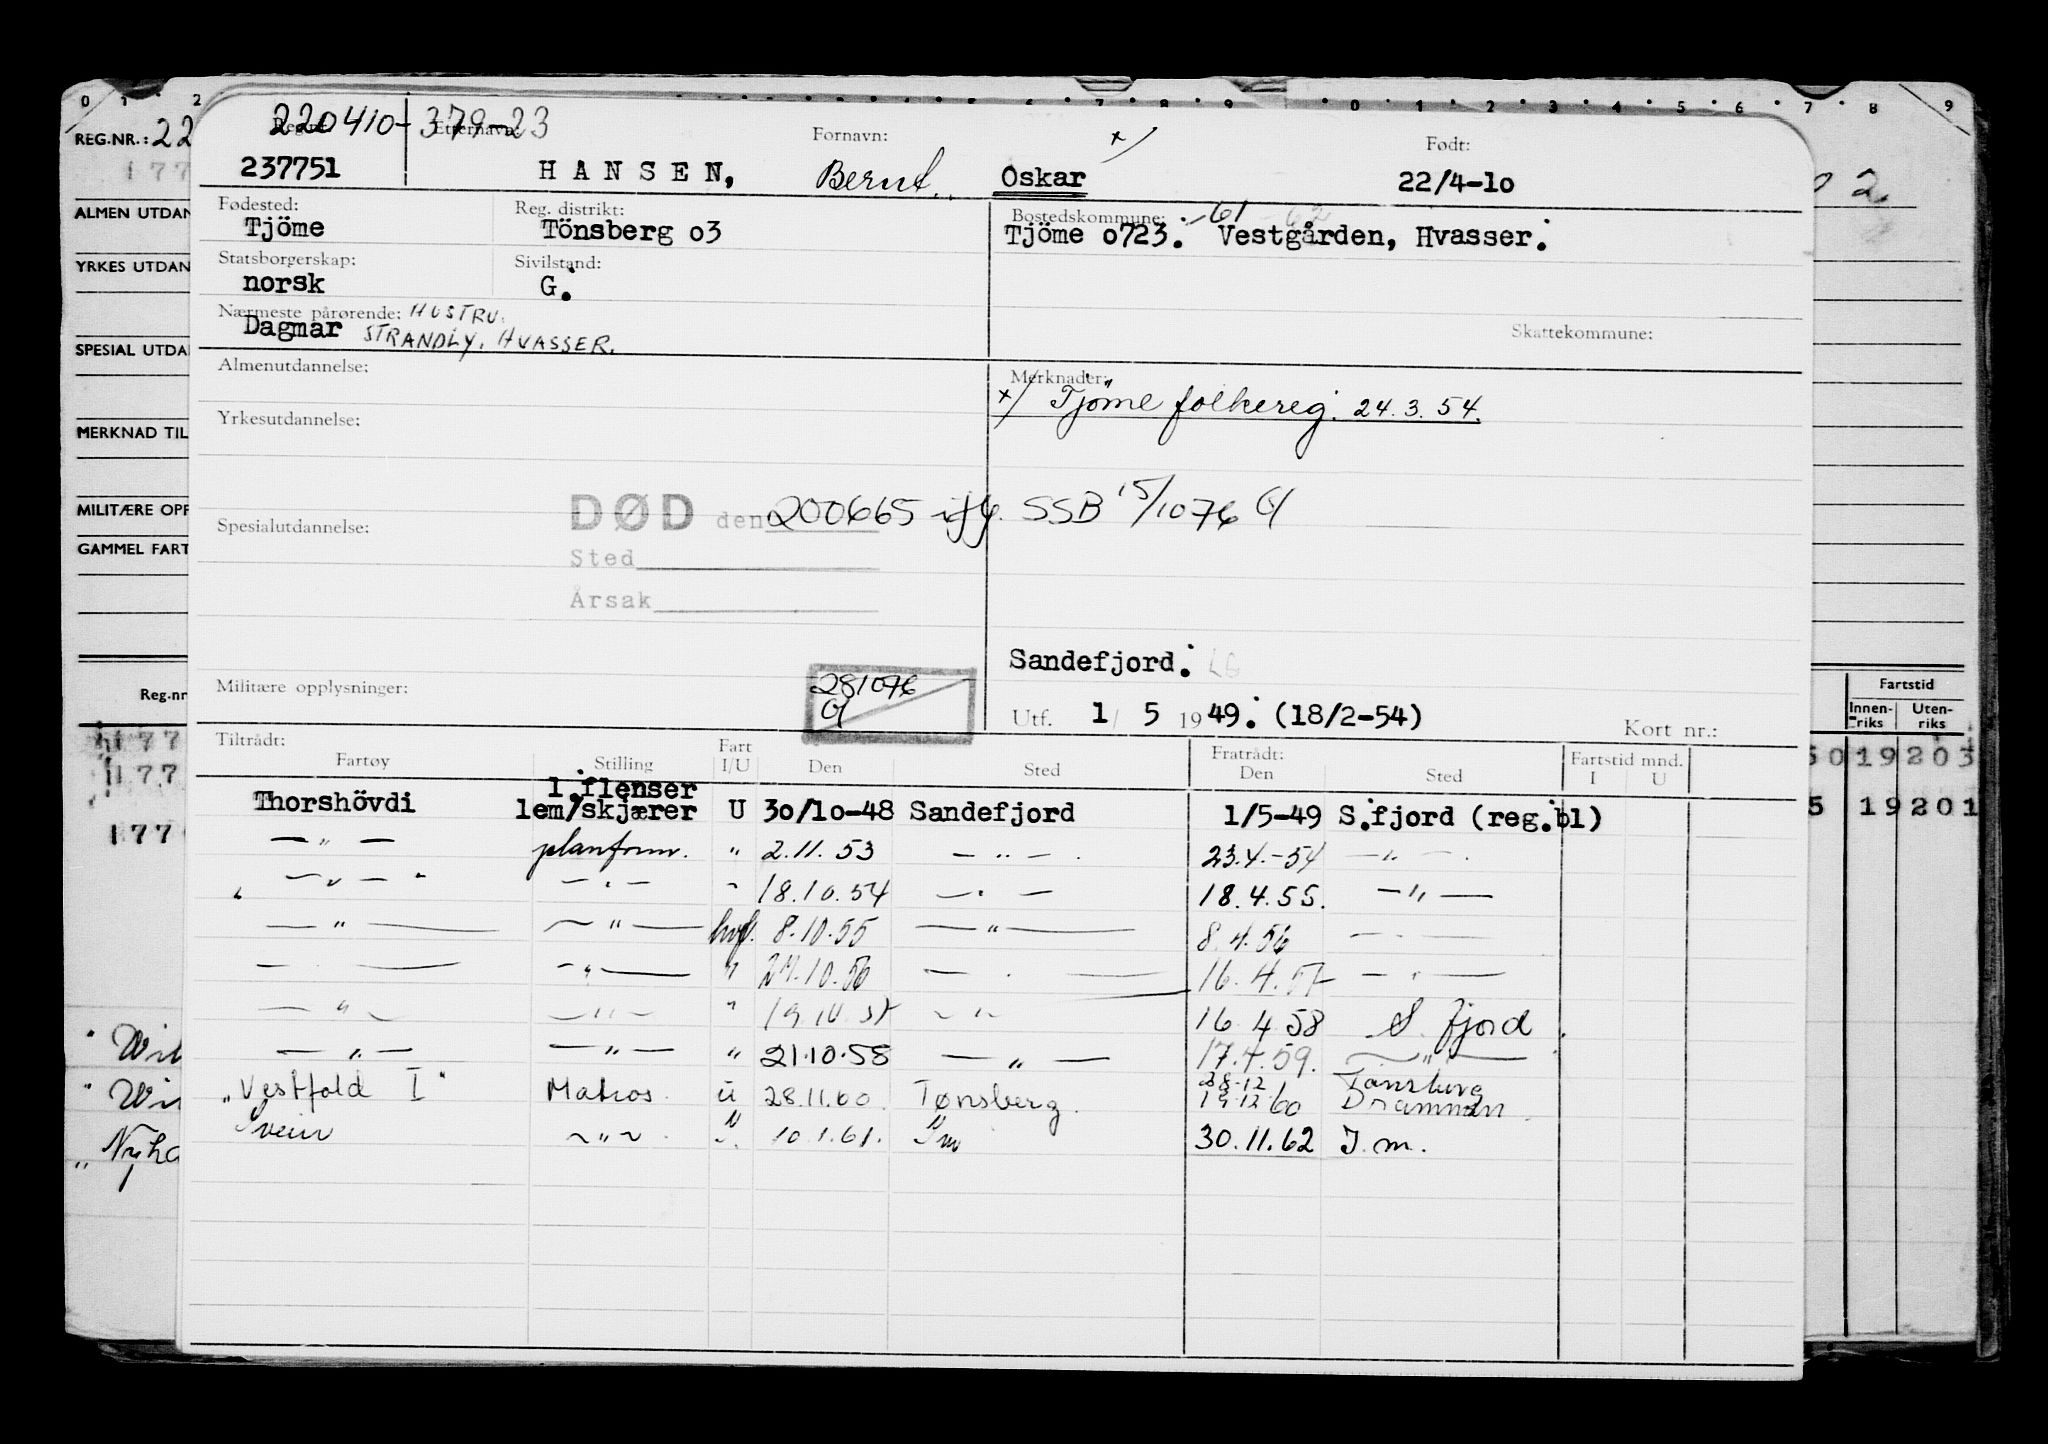 0 1 2 7 8 9 0 1 2 3 4 5 6 7 8 9
REG.NR.: 22
177
ALMEN UTDAN
YRKES UTDAN
SPESIAL UTDA
MERKNAD TIL
MILITÆRE OPP
GAMMEL FART
Reg.nr
177
177
177
" Wil
" Wil
" Nyho
220410-379-23
Reg.nr. Etternavn: Fornavn: x/ Født:
237751 HANSEN, Bernt. Oskar 22/4-1o
Fødested: Reg. distrikt: Bostedskommune: -61-62
Tjöme Tönsberg o3 Tjöme o723. Vestgården, Hvasser.
Statsborgerskap: Sivilstand:
norsk G.
Nærmeste pårørende: HUSTRU.
Dagmar STRANDLY. HVASSER. Skattekommune:
Almenutdannelse: Merknader:
x/ Tjöme folkereg. 24.3.54.
Yrkesutdannelse:
Spesialutdannelse: DØD den 200665 iflg. SSB 15/1076
Sted
Årsak
Sandefjord.
Militære opplysninger: 281076
Utf. 1/ 5 1949. (18/2-54) Kort nr.:
Tiltrådt: Fratrådt: Fartstid mnd.
Fartøy Stilling Fart I/U Den Sted Den Sted I U
1.flenser
Thorshövdi lem/skjærer U 3o/1o-48 Sandefjord 1/5-49 S.fjord (reg.bl)
— " — planform. " 2.11.53 — " — . 23.4.-54 — " — .
— " — — " — " 18.10.54 — " — 18.4.55. — " —
— " — — " — hvf. 8.10.55 — " — 8.4.56 — " —
— " — — " — " 24.10.56 — " — 16.4.57 — " —
— " — — " — " 19.10.57 — " — 16.4.58 S. fjord.
— " — — " — " 21.10.58 — " — 17.4.59. — " —
"Vestfold I" Matros. u 28.11.60. Tønsberg. 28.12 Tønsberg
19.12.60 Drammen.
Svein — " — . 10.1.61. Im 30.11.62 I.m.
0 2
Fartstid
Innen-riks Uten-riks
50 19 203
5 19 201